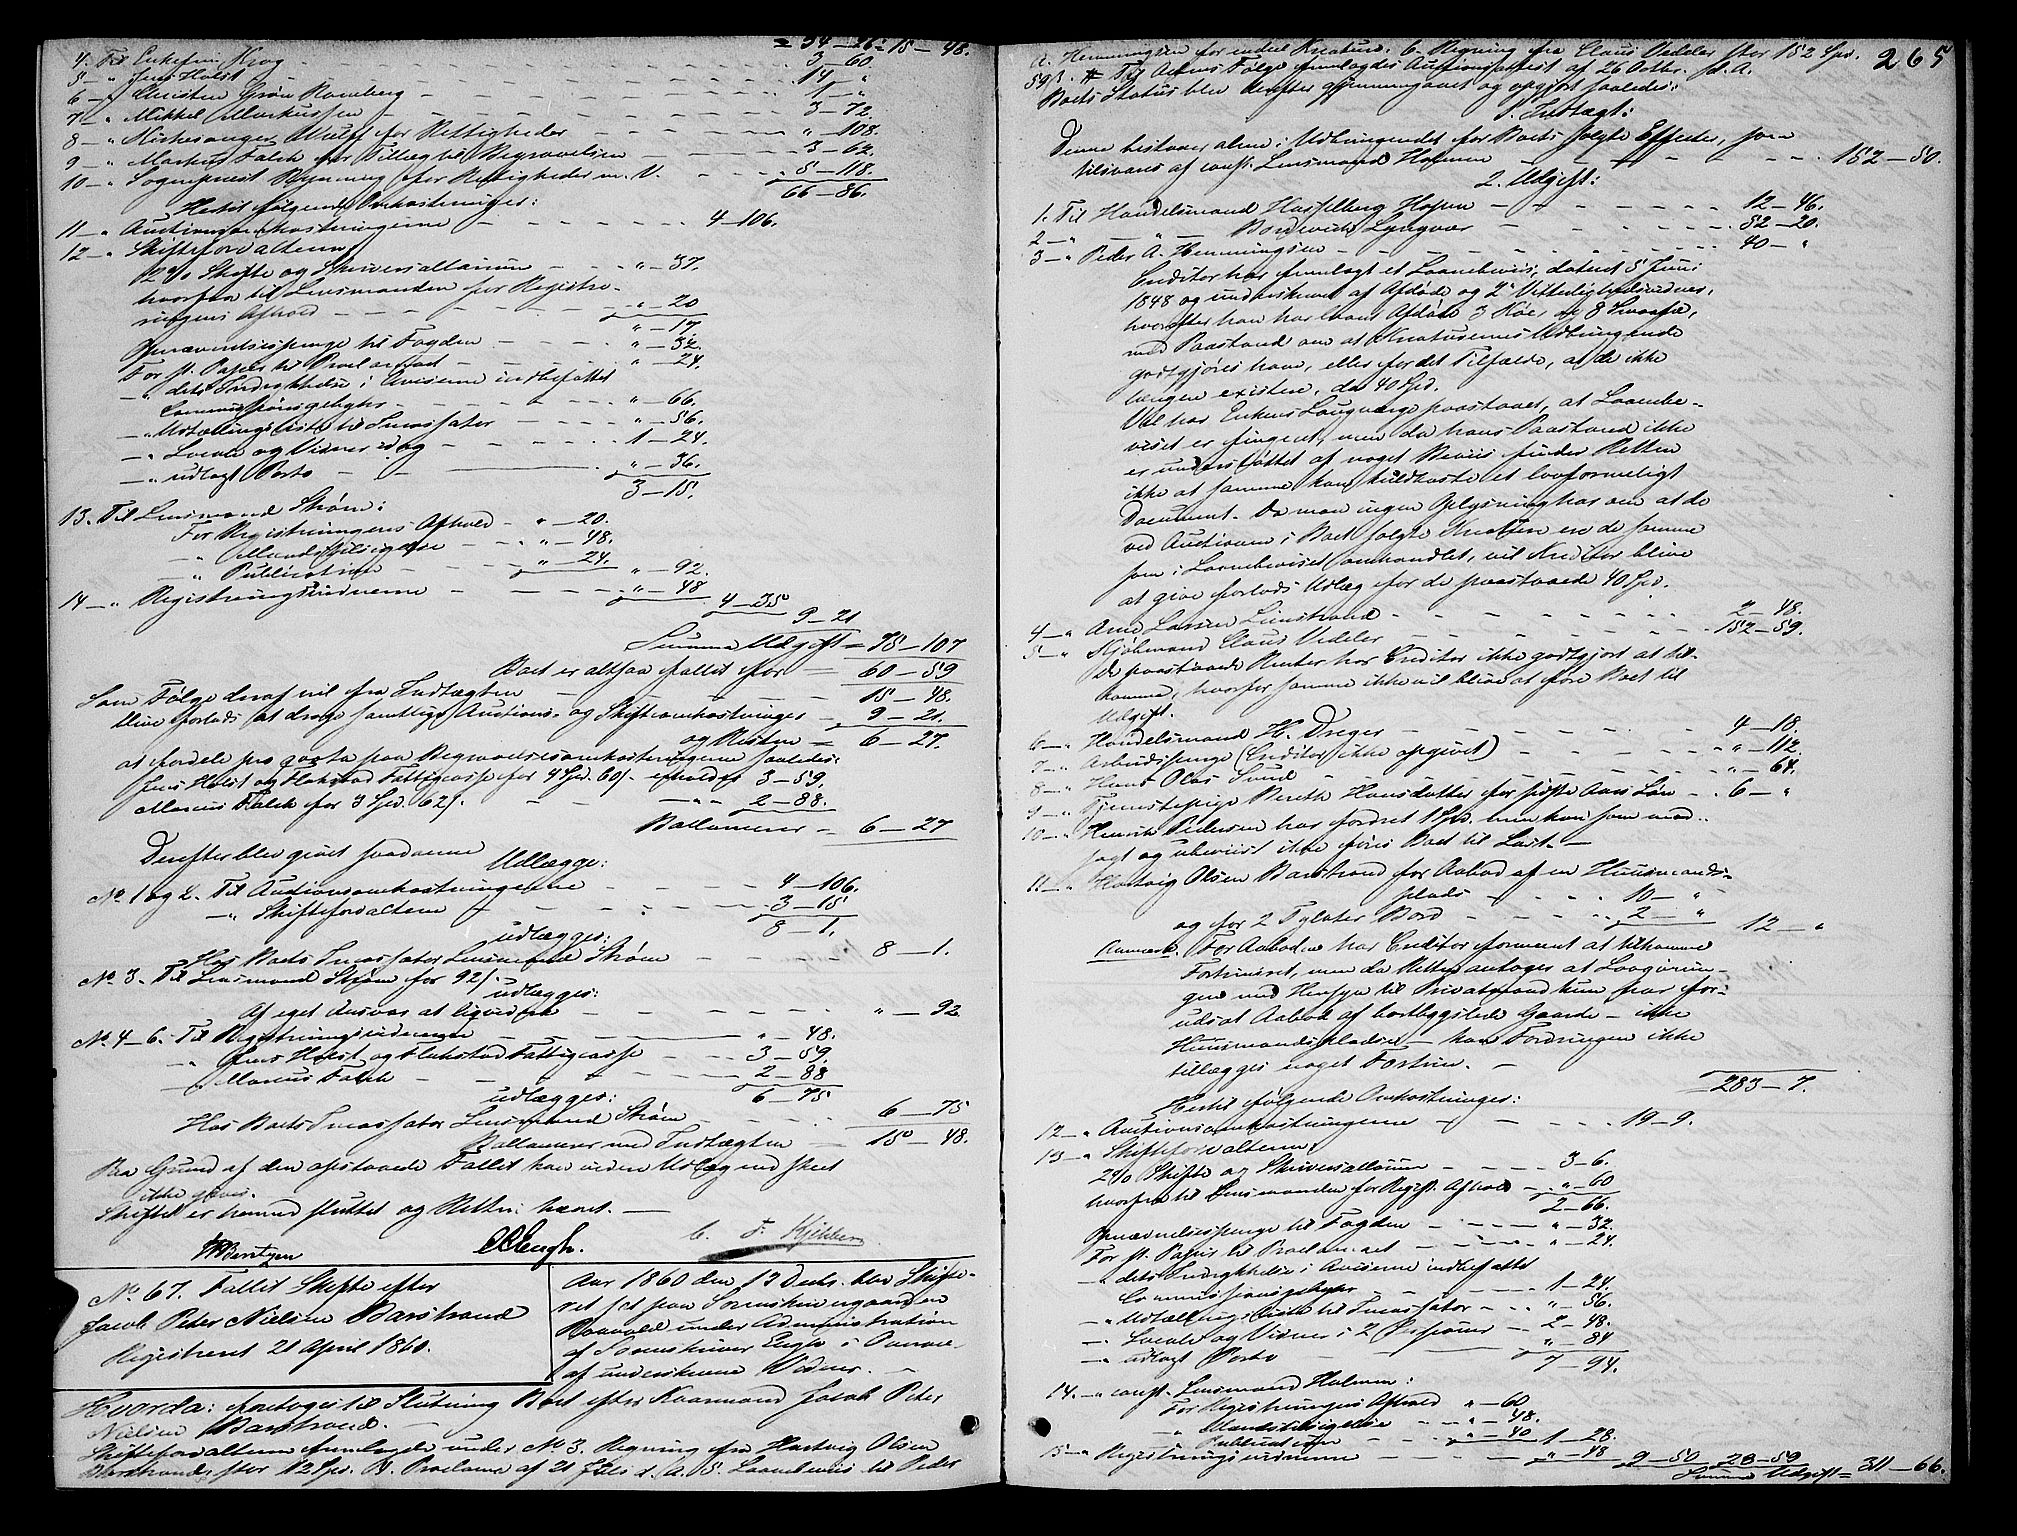 = 54 – 26 – 15 – 48.
4. Til Enkefru Krog – 3–60.
5 – " Jens Holst – 14 – "
6 – " Christen Grøn Romberg – 1 – "
7 – " Mikkel Markussen – 3–72.
8 – " Kirkesanger Wulff for Rettigheder – " –108.
9 – " Marcus Falch for Tillæg til Begravelsen – 3–62.
10 – " Sognepræst Rynning for Rettigheder m. V. – 5–118.
66–86.
Hertil følgende Omkostninger:
11 – " Auctionsomkostningerne – 4–106.
12 – " Skifteforvalteren:
2% Skifte og Skriversallarium – " –37.
hvorfra til Lensmanden for Registre-
ringens Afhold – " –20
" –17.
Opnævnelsespenge til Fogden – " –32.
For st. Papir til Proclamaet – " –24.
– " dets Indrykkelse i Aviserne indbefattet
Commissionsgebyhr – " –66.
– " Udtællingsliste til Incassator – " –56.
– " Locale og Vidner idag – 1–24.
– " udlagt Porto – " –36.
3–15.
13. Til Lensmand Strøm:
For Registreringens Afhold – " –20.
– " Mandstilsigelse – " –48.
– " Publication – " –24. " –92.
14 – " Registreringsvidnerne – " –48
4–35
9–21
Summa Udgift = 75–107
Boet er altsaa fallit for = 60–59
Som Følge deraf vil fra Indtægten 15–48.
blive forlods at drage samtlige Auctions- og Skifteomkostninger – 9–21.
og Resten = 6–27.
at fordele pro qvota paa Begravelsesomkostningerne saaledes:
Jens Holst og Flakstad Fattigcasse for 4 Spd. 60 s. erholder 3–59.
Marcus Falch for 3 Spd. 62 s. – " 2–88.
Ballancerer = 6–27
Derefter blev gjort saadanne
Udlægge:
No. 1 og 2. Til Auctionsomkostningerne – 4–106.
– " Skifteforvalteren – 3–15
8–1.
udlægges:
Hos Boets Incassator Lensmand Strøm – 8–1.
No. 3. Til Lensmand Strøm for 92 s.
udlægges:
Af eget Ansvar at liqvidere – " –92
No. 4–6. Til Registreringsvidnerne – " 48.
– " Jens Holst og Flakstad Fattigcasse – 3–59.
– " Marcus Falch – 2–88
udlægges: 6–75
Hos Boets Incassator Lensmand Strøm – 6–75
Ballancerer med Indtægten – 15–48.
Paa Grund af den opstaaede Fallit kan videre Udlæg end skeet
ikke gjøres.
Skiftet er hermed sluttet og Retten hævet. –
C. F. Kjeldsen
No. 67. Fallit Skifte efter
Jacob Peter Nielsen Barstrand
Registreret 21 April 1860.
Aar 1860 den 13 Decbr. blev Skifte-
ret sat paa Sorenskrivergaarden
under Administration
af Sorenskriver Engh i Overvær
af underskrevne Vidner. –
Hvorda: foretoges til Slutning Boet efter Kaarmand Jacob Peter
Nielsen Barstrand. –
Skifteforvalteren fremlagde under No. 3. Regning fra Hartvig Olsen
Barstrand stor 12 Spd. B. Proclama af 21 Juli d. A. 5. Laanebeviis til Peder
265
A. Hemmingsen for endeel Kreature. 6. Regning fra Claus Vedeler stor 152 Spd.
59 s. Til Actens Følge fremlagdes Auctionsforret af 26 Octbr. d. A.
Boets Status blev derefter gjennemgaaet og opgjort saaledes:
1. Indtægt:
Denne bestaaer alene i Udbringendet for Boets solgte Effecter, som
tilsvares af const. Lensmand Holmen – 152–50.
2. Udgift:
1. Til Handelsmand Hasselberg – 12–46.
2 – " – " – Lyngvær – 52–20.
3 – " Peder A. Hemmingsen – 40–"
Creditor har fremlagt et Laanebeviis, dateret 5 Juni
1848 og underskrevet af Afdøde og 2de Vitterlighedsvidner,
hvorefter han har laant Afdøde 3 Køer og 8 Smaafæ,
med Paastand om at Kreaturernes Udbringende
godtgjøres ham, eller for det Tilfælde, at de ikke
længere existere, da 40 Spd.
Vel har Enkens Laugværge paastaaet, at Laanebe-
viset er fingeret, men da hans Paastand ikke
er understøttet af noget Beviis finder Retten
ikke at samme kan kuldkaste et lovformeligt
Document. Da man ingen Oplysning har om at de
ved Auctionen i Boet solgte Kreaturer ere de samme
som i Laanebeviset omhandlet, vil Kreditor blive
at give forlods Udlæg for de paastaaede 40 Spd.
4 – " Arne Larsen Limstrand – 2–48.
5 – " Kjøbmand Claus Vedeler – 152–59.
De paastaaede Renter har Creditor ikke godtgjort at til-
komme, hvorfor samme ikke vil blive at føre Boet til
Udgift.
6 – " Handelsmand H. Dreyer – 4–18.
7 – " Arbeidspenge (Creditor ikke opgivet) – " –112.
8 – " Hans Olai Sund – " –64.
9 – " Tjenestepige Berith Hansdatter for sidste Aars Løn – 6–"
10 – " Henrik Pedersen har fordret 1 Spd. men kan som mod-
sagt og ubeviist ikke føres Boet til Last. –
11 – " Hartvig Olsen Barstrand for Aabod af en Huusmands-
plads – 10–"
og for 2 Tylvter Bord – 2–" 12–"
Anmærk. For Aaboden har Creditor formeent at tilkomme
Fortrinsret, men da Retten antager at Lovgivnin-
gen med Hensyn til Privatmand kun har for-
udsat Aabod af bortbygslede Gaarde – ikke
Huusmandspladse – kan Fordringen ikke
tillægges noget Fortrin. –
283–7.
Hertil følgende Omkostninger:
12 – " Auctionsomkostningerne – 19–9.
13 – " Skifteforvalteren:
2% Skifte og Skriversallarium – 3–6.
hvorfra til Lensmanden for Regist. Afhold – " –60
2–66.
Opnævnelsespenge til Fogden – " –32.
For st. Papir til Proclamaet – " –24.
– " dets Indrykkelse i Aviserne indbefattet
Commissionsgebyhr – 1–24.
– " Udtællingsliste til Incassator – " –56.
– " Locale og Vidner i 2 Sessioner – 2–48.
– " udlagt Porto – " 84
7–94.
14. – " const. Lensmand Holmen:
For Registreringens Afhold " –60
– " Mandstilsigelse – " –48.
– " Publication – " –40 1–28.
15 – " Registreringsvidnerne – " –48 9–50 28–59
Summa Udgift = 311–66.